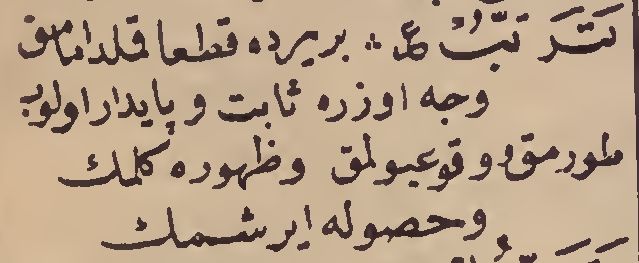 تَتَرَتَّبُ ع ∴ بر یرده قطعا قلدامامق
وجه اوزره ثابت و پایدار اولوب
طورمق و وقوعبولمق وظهوره كلمك
وحصوله ایرشمك